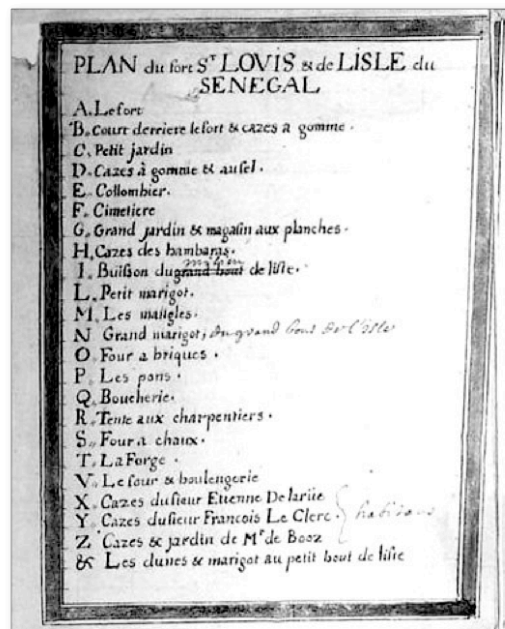 PLAN du fort S.ᵀ LOVIS & de LISLE du
SENEGAL
A. Le fort
B. Court derriere le fort & cazes a gomme.
C. Petit jardin
D. Cazes à gomme & au sel.
E. Collombier.
F. Cimetiere
G. Grand jardin & magasin aux planches.
H. Cazes des bambaras.
I. Buisson du grand bout de lisle. milieu
L. Petit marigot.
M. Les mangles.
N Grand marigot, du grand bout de l'isle
O. Four a briques.
P. Les pons.
Q. Boucherie.
R. Tente aux charpentiers.
S. Four a chaux.
T. La Forge.
V. Le four & boulengerie
X. Cazes du sieur Etienne De larüe
Y. Cazes du sieur Francois Le Clerc. habitans
Z Cazes & jardin de Mʳ de Booz
& Les dunes & marigot au petit bout de lisle